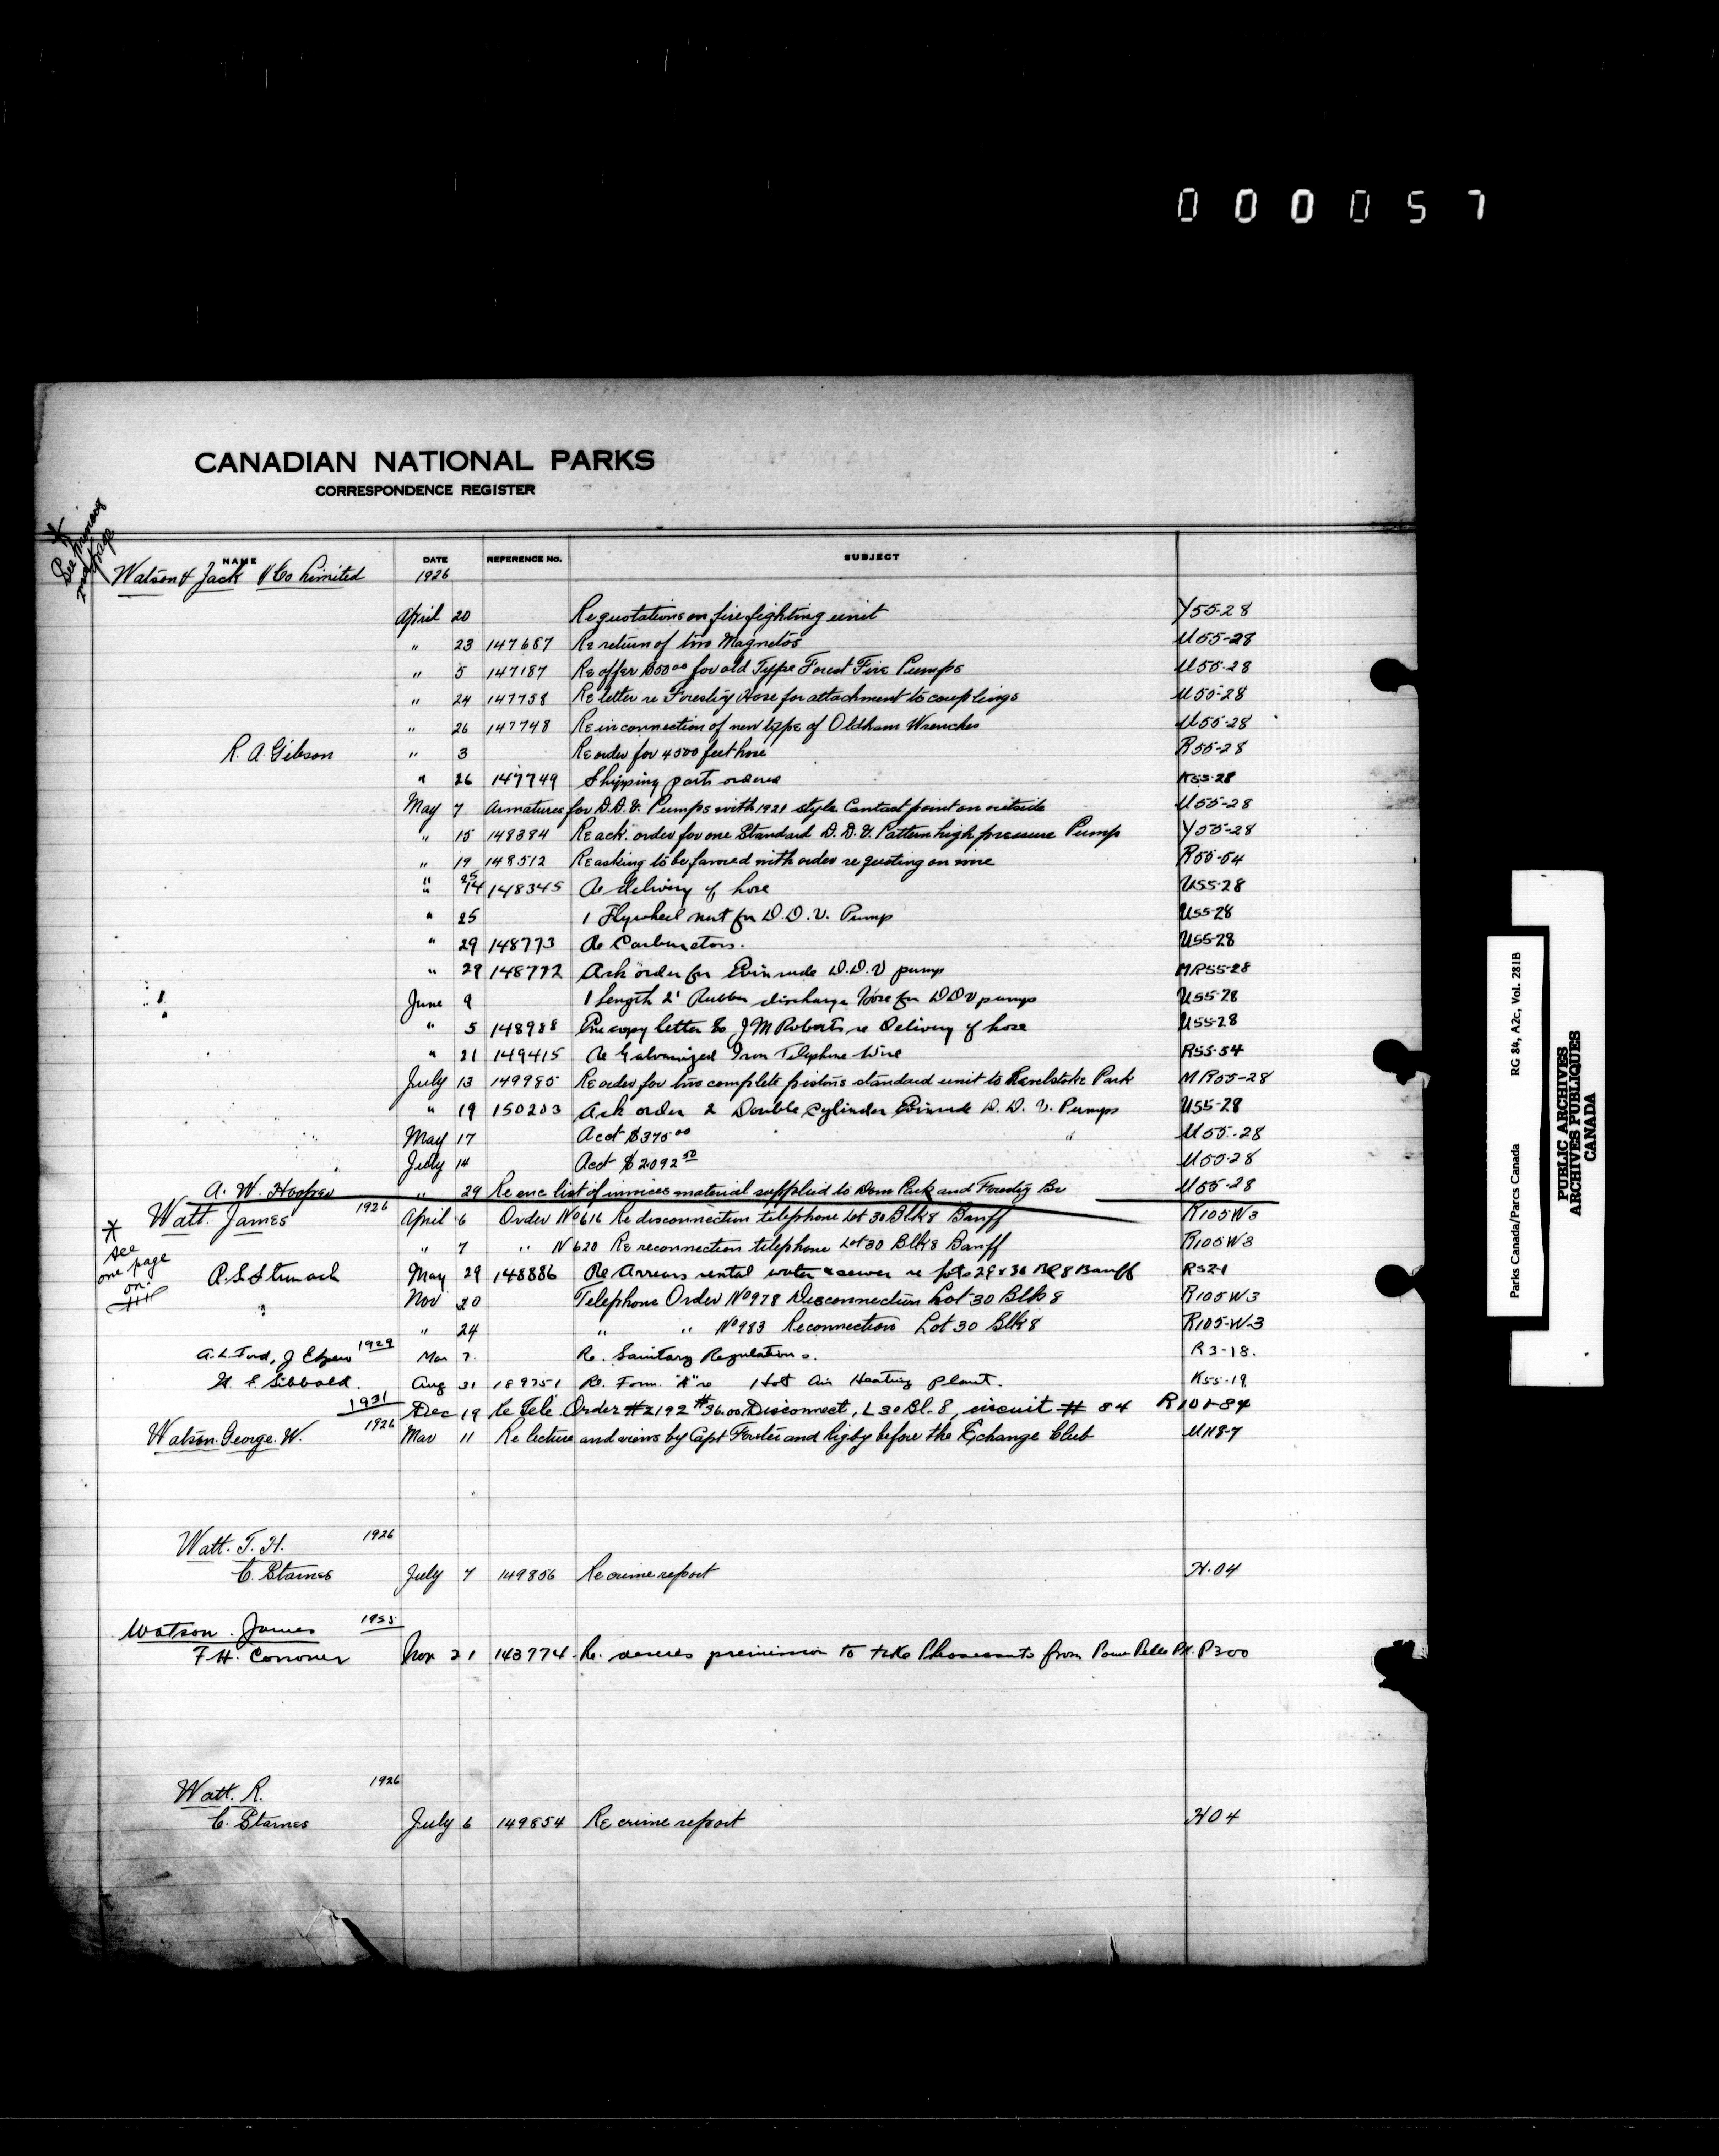 000057
CANADIAN NATIONAL PARKS
CORRESPONDENCE REGISTER
* See previous page
NAME DATE REFERENCE No. SUBJECT
Watson & Jack & Co Limited 1926
April 20 Re quotations on fire fighting unit Y55-28
" 23 147687 Re return of two Magnetos U55-28
" 5 147187 Re offer $50.00 for old Type Forest Fire Pumps U55-28
" 24 147758 Re letter re Forestry Hose for attachment to couplings U55-28
" 26 147748 Re in connection of new type of Oldham Wrenches U55-28
R. A. Gibson " 3 Re order for 4500 feet hose R55-28
" 26 147749 Shipping parts ordered K55-28
May 7 Armatures for D.D.V. Pumps with 1921 style Contact point on outside U55-28
" 15 148384 Re ack. order for one Standard D.D.V. Pattern high pressure Pump Y55-28
" 19 148512 Re asking to be favored with order re quoting on wire R55-54
" 14 148345 Re delivery of hose U55-28
" 25 1 Flywheel nut for D.D.V. Pump U55-28
" 29 148773 Re Carburetors. U55-28
" 29 148772 Ack order for Evinrude D.D.V pump MR55-28
June 9 1 length 2" Rubber discharge hose for DDV pumps U55-28
" 5 148988 Enc copy letter to J M Roberts re Delivery of hose U55-28
" 21 149415 Re Galvanized Iron Telephone Wire R55-54
July 13 149985 Re order for two complete pistons standard unit to Revelstoke Park MR55-28
" 19 150203 Ack order 2 Double Cylinder Evinrude D.D.V. Pumps U55-28
May 17 Acct $375.00 U55-28
July 14 Acct $2092.50 U55-28
A. W. Hooper " 29 Re enc list of invoices material supplied to Dom Park and Forestry Br U55-28
Watt. James 1926 April 6 Order No 616 Re disconnection telephone Lot 30 Blk 8 Banff R105W3
* see one page on.
" 7 " N 620 Re reconnection telephone Lot 30 Blk 8 Banff R105W3
R.S. Stronach May 29 148886 Re Arrears rental water & sewer re lots 29 & 30 Bl 8 Banff R521
" Nov 20 Telephone Order No 978 Disconnection Lot 30 Blk 8 R105W3
" 24 " " No 983 Reconnection Lot 30 Blk 8 R105-W-3
A. L. Ford, J 1929 Mar 7. Re. Sanitary Regulations. R3-18.
Sibbald. Aug 31 189751 Re. Form "A" re Hot Air Heating Plant. K55-19
1931 Dec 19 Re Tele Order #2192 $36.00 Disconnect, L 30 Bl. 8, circuit # 84 R101-84
Watson. George. W. 1926 Mar 11 Re lecture and views by Capt Foster and Rigby before the Exchange Club U118-7
Watt. T. H. 1926
C. Starnes July 7 149856 Re crime report H.04
Watson. James
F. H. Conover Nov 21 143774. Re. desires permission to take Pheasants from Point Pelee Pk. P300
Watt. R. 1926
C. Starnes July 6 149854 Re crime report H04
Parks Canada/Parcs Canada RG 84, A2c, Vol. 281B
PUBLIC ARCHIVES
ARCHIVES PUBLIQUES
CANADA